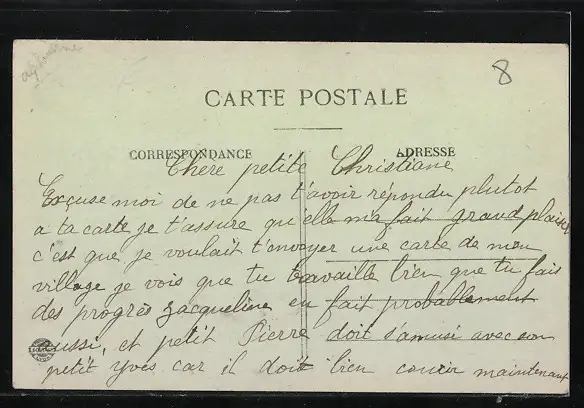 8
CARTE POSTALE
CORRESPONDANCE
ADRESSE
Chère petite Christiane
Excuse moi de ne pas t'avoir répondu plutot
a ta carte je t'assure qu'elle m'a fait grand plaisir
c'est que je voulait t'envoyer une carte de mon
village je vois que tu travaille bien que tu fais
des progrès Jacqueline en fait probablement
aussi, et petit Pierre doit s'amusé avec son
petit Yves car il doit bien courir maintenant